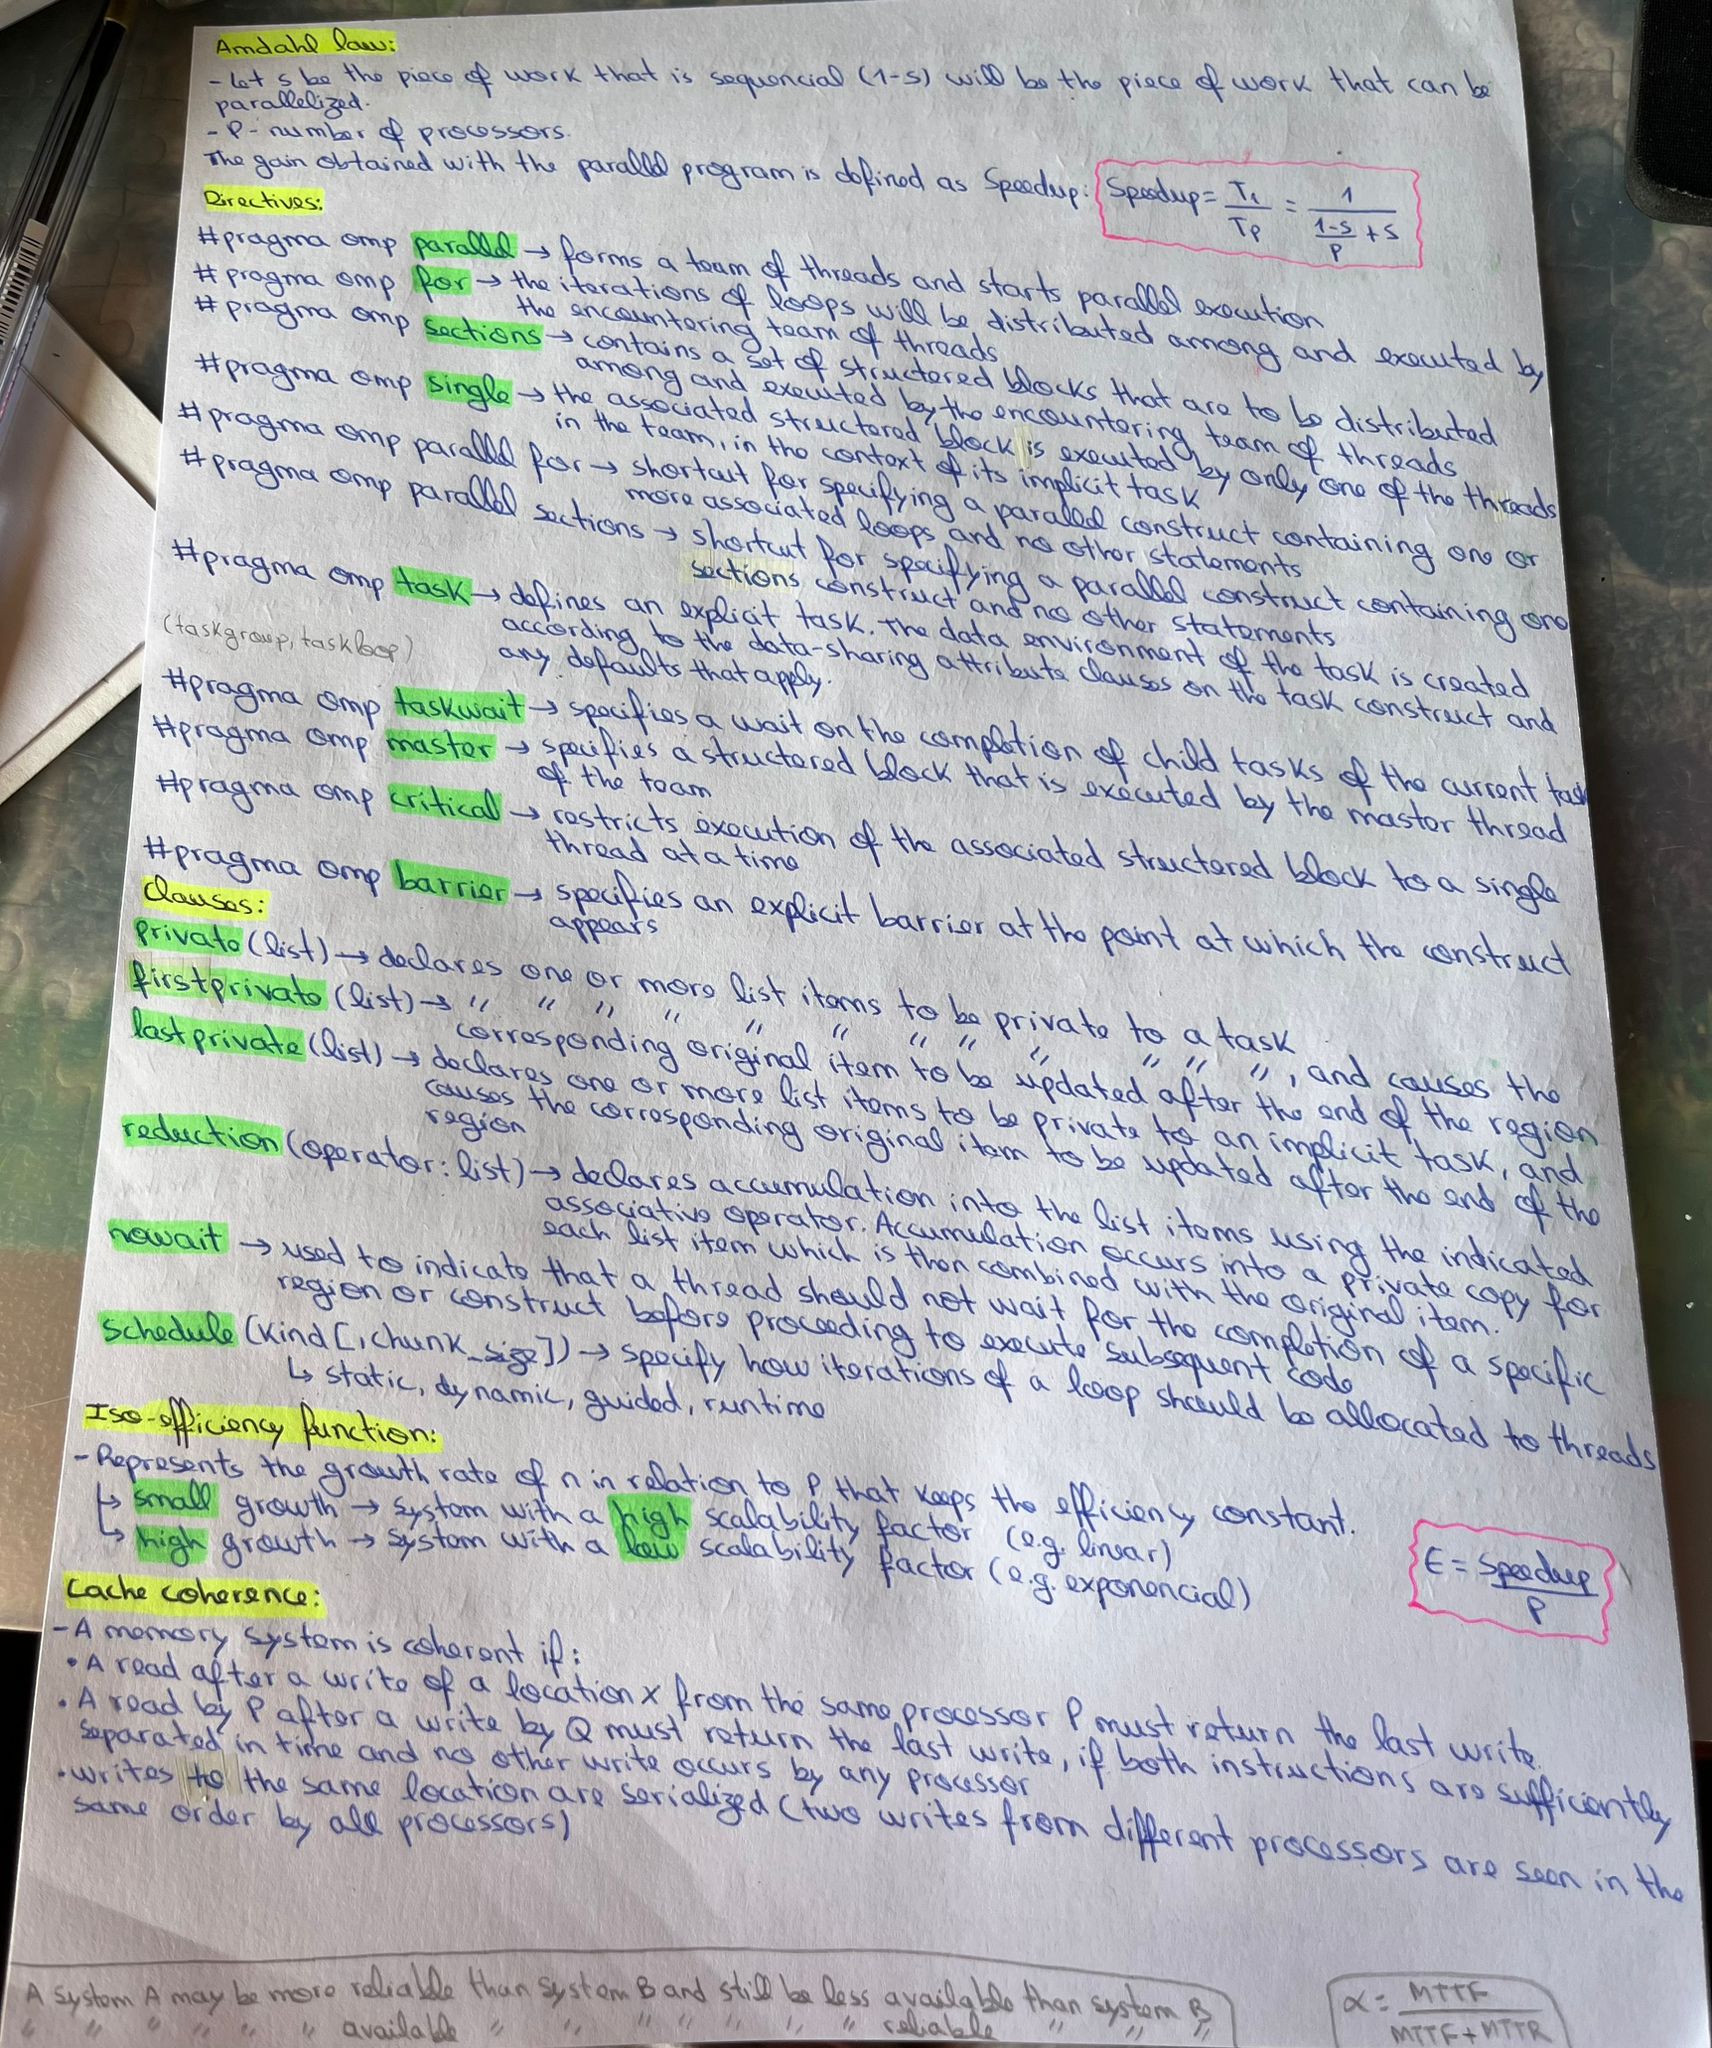 Amdahl law:
- Let s be the piece of work that is sequencial (1-s) will be the piece of work that can be
parallelized.
- P - number of processors.
The gain obtained with the parallel program is defined as Speedup: Speedup = T₁/Tp = 1/((1-s)/P + s)
Directives:
#pragma omp parallel → forms a team of threads and starts parallel execution
#pragma omp for → the iterations of loops will be distributed among and executed by
the encountering team of threads
#pragma omp sections → contains a set of structured blocks that are to be distributed
among and executed by the encountering team of threads
#pragma omp single → the associated structured block is executed by only one of the threads
in the team, in the context of its implicit task
#pragma omp parallel for → shortcut for specifying a parallel construct containing one or
more associated loops and no other statements
#pragma omp parallel sections → shortcut for specifying a parallel construct containing one
sections construct and no other statements
#pragma omp task → defines an explicit task. The data environment of the task is created
according to the data-sharing attribute clauses on the task construct and
any defaults that apply.
(taskgroup, taskloop)
#pragma omp taskwait → specifies a wait on the completion of child tasks of the current task
#pragma omp master → specifies a structured block that is executed by the master thread
of the team
#pragma omp critical → restricts execution of the associated structured block to a single
thread at a time
#pragma omp barrier → specifies an explicit barrier at the point at which the construct
appears
Clauses:
private (list) → declares one or more list items to be private to a task
firstprivate (list) → " " " " " " " " " " " ", and causes the
corresponding original item to be updated after the end of the region
lastprivate (list) → declares one or more list items to be private to an implicit task, and
causes the corresponding original item to be updated after the end of the
region
reduction (operator: list) → declares accumulation into the list items using the indicated
associative operator. Accumulation occurs into a private copy for
each list item which is then combined with the original item.
nowait → used to indicate that a thread should not wait for the completion of a specific
region or construct before proceeding to execute subsequent code
schedule (kind[, chunk_size]) → specify how iterations of a loop should be allocated to threads
↳ static, dynamic, guided, runtime
Iso-efficiency function:
- Represents the growth rate of n in relation to P that keeps the efficiency constant.
↳ small growth → system with a high scalability factor (e.g. linear)
↳ high growth → system with a low scalability factor (e.g. exponencial)
E = Speedup/P
Cache coherence:
- A memory system is coherent if:
• A read after a write of a location X from the same processor P must return the last write.
• A read by P after a write by Q must return the last write, if both instructions are sufficiently
separated in time and no other write occurs by any processor
• writes to the same location are serialized (two writes from different processors are seen in the
same order by all processors)
A system A may be more reliable than system B and still be less available than system B
" " " " " available " " " " " " " reliable " " "
α = MTTF/(MTTF + MTTR)